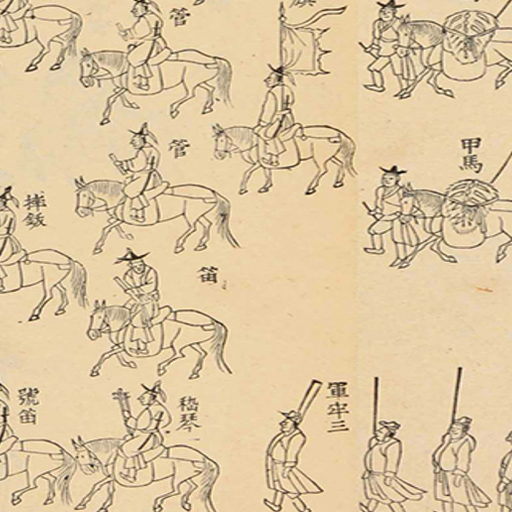 甲馬
軍牢三
管
管
笛
嵇琴
號笛